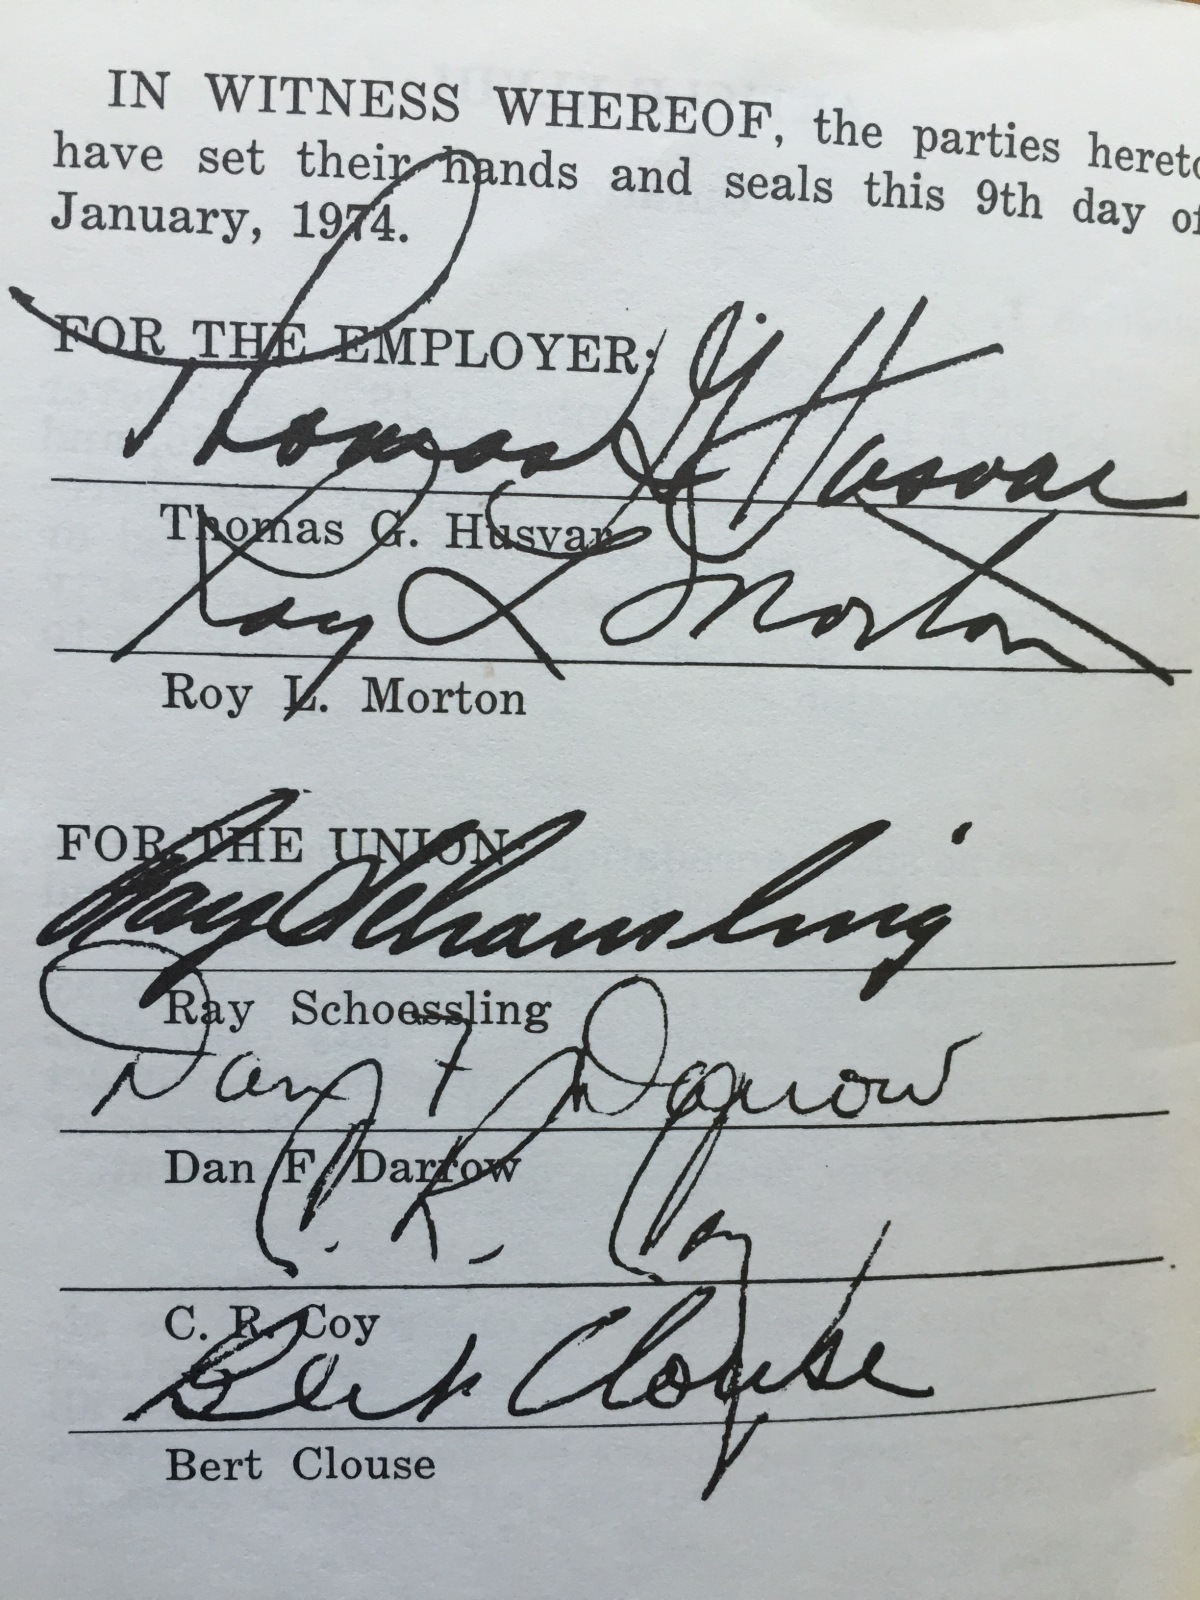 IN WITNESS WHEREOF, the parties hereto
have set their hands and seals this 9th day of
January, 1974.
FOR THE EMPLOYER:
Thomas G Husvar
Thomas G. Husvar
Roy L Morton
Roy L. Morton
FOR THE UNION:
Ray Schoessling
Ray Schoessling
Dan F Darrow
Dan F. Darrow
C. R. Coy
C. R. Coy
Bert Clouse
Bert Clouse